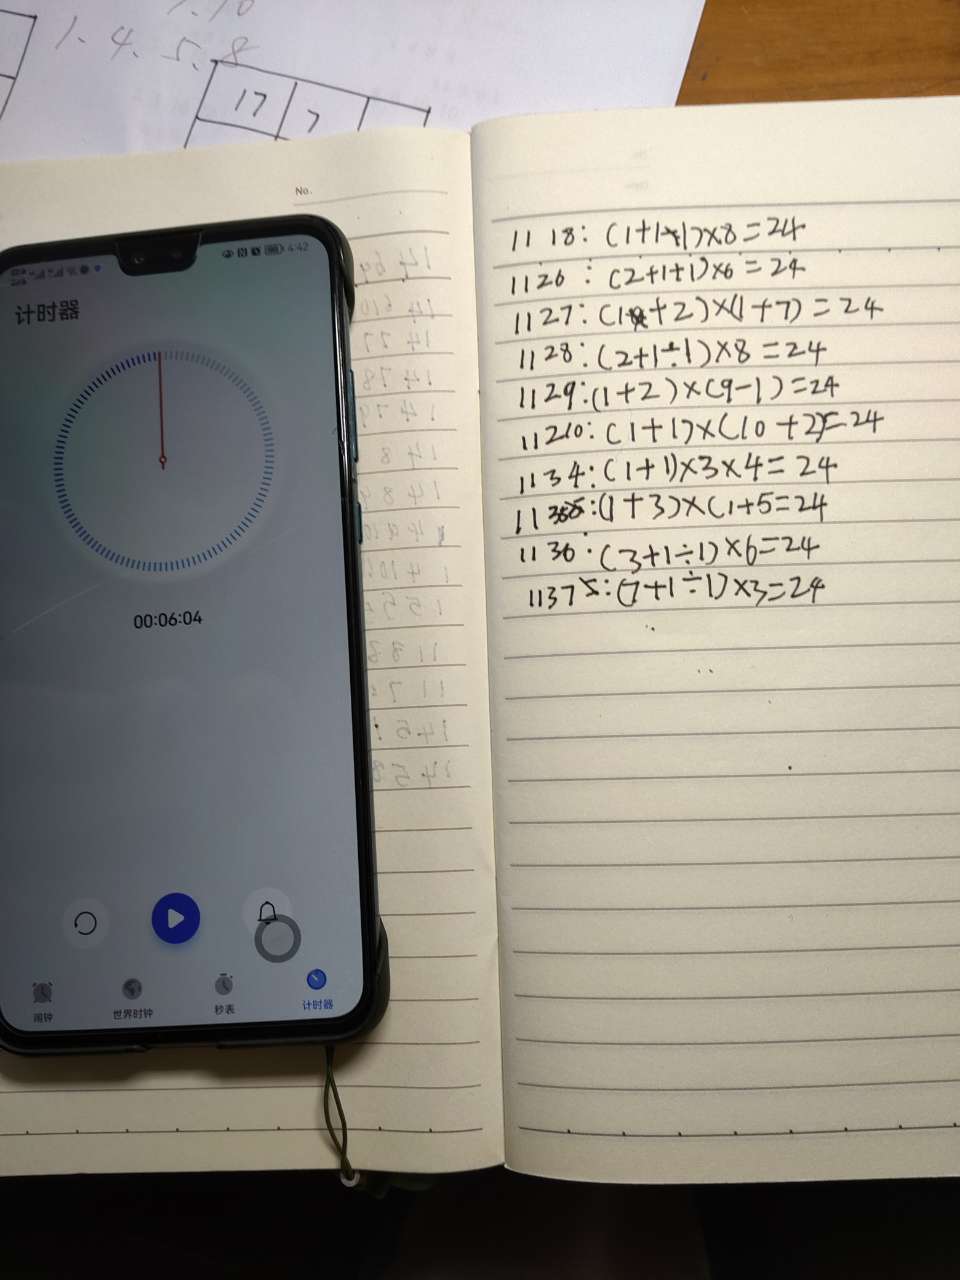 1.10
1. 4. 5. 8
17 7
No.
4:42
计时器
00:06:04
闹钟 世界时钟 秒表 计时器
11 18: (1+1+1)×8=24
1126 : (2+1+1)×6=24
1127: (1+2)×(1+7)=24
1128: (2+1÷1)×8=24
1129: (1+2)×(9-1)=24
11210: (1+1)×(10+2)=24
1134: (1+1)×3×4=24
1135: (1+3)×(1+5=24
1136: (3+1÷1)×6=24
1137: (7+1÷1)×3=24